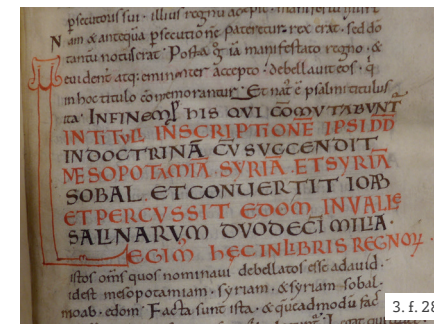 psecutorus sui. illius regnū accepit. manifestū fuit.
Nam & anteq̄ua psecutionē pateretur. rex erat. sed do
tantū notus erat. Postea g̊ iā manifestato regno. &
euident atq; eminenter accepto. debellauit eos. q̊
in hoc titulo cōmemorantur. Et nāt̄ ē psalmi titulus
ita. INFINEM P HIS QVI CŌMVTABVNT̄
INTITVLI INSCRIPTIONĒ IPSI DD̄
IN DOCTRINĀ CV̄ SVCCENDIT
MESOPOTAMIĀ SYRIĀ. ET SYRIĀ
SOBAL. ET CONVERTIT IOAB
ET PERCVSSIT EDOM IN VALLE
SALINARVM DVODECĪ MILIA.
LEGIM HĘC IN LIBRIS REGNOꝜ.
istos oms̄ quos nominaui debellatos esse a dauid.
idest mesopotamiam. syriam. & syriam sobal.
moab. edom. Facta sunt ista. & quēadmodū fac
3. f. 28